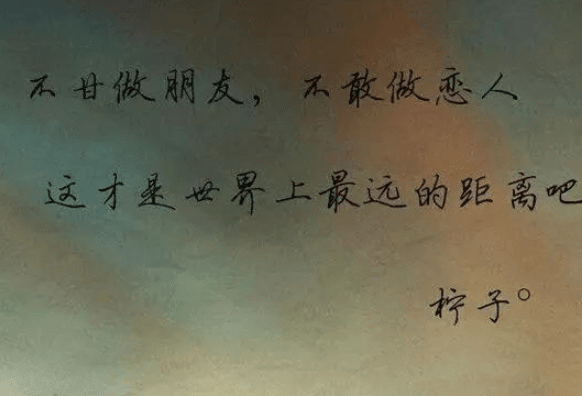 不甘做朋友，不敢做恋人
这才是世界上最远的距离吧
柠子。